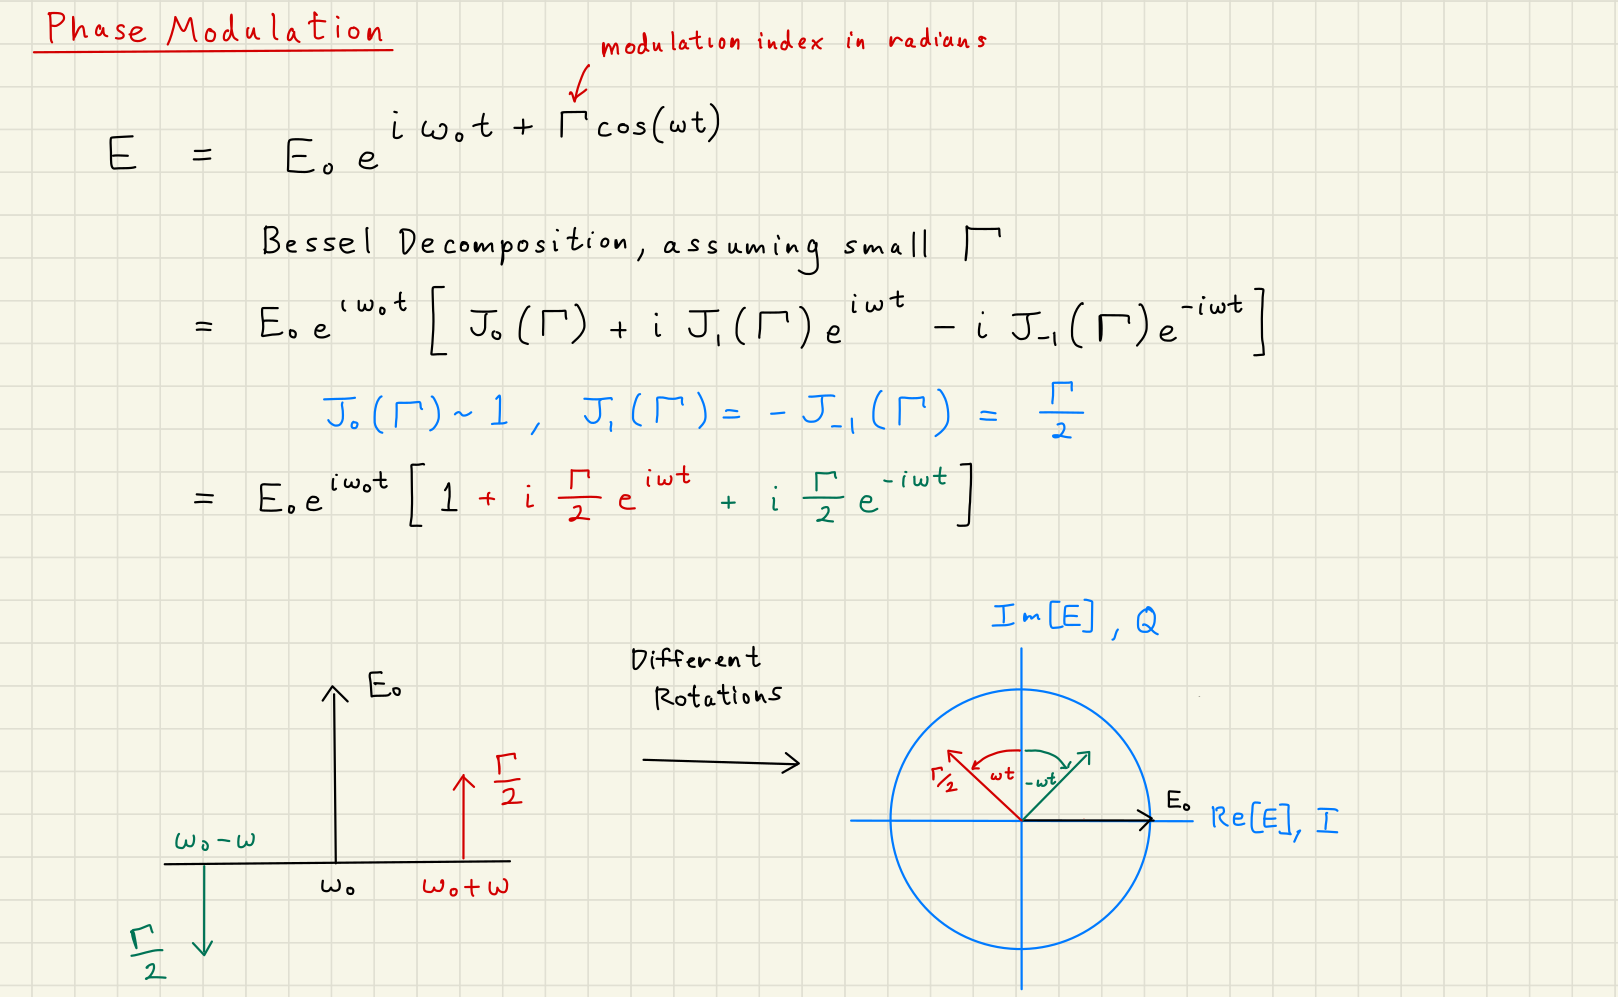 Phase Modulation
modulation index in radians
E = E₀ e^{i ω₀t + Γ cos(ωt)}
Bessel Decomposition, assuming small Γ
= E₀ e^{iω₀t} [ J₀(Γ) + i J₁(Γ) e^{iωt} − i J₋₁(Γ) e^{-iωt} ]
J₀(Γ) ~ 1, J₁(Γ) = − J₋₁(Γ) = Γ/2
= E₀ e^{iω₀t} [ 1 + i Γ/2 e^{iωt} + i Γ/2 e^{-iωt} ]
Im[E], Q
Different
Rotations
E₀
Γ/2
Γ/2
ωt
-ωt
E₀
Re[E], I
ω₀-ω
ω₀
ω₀+ω
Γ/2